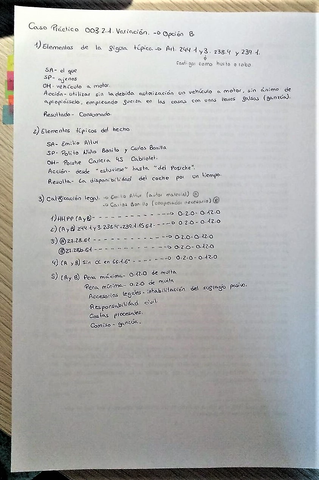 Caso Práctico 003.2.1. Variación. → Opción B
1) Elementos de la figura típica → Art. 244.1 y 3 - 238.4 y 239.1.
Castigo como hurto o robo
SA- el que
SP- ajenos
OM- vehículo a motor.
Acción- utilizar sin la debida autorización un vehículo a motor, sin ánimo de
apropiárselo, empleando fuerza en las cosas con unas llaves falsas (ganzúa).
Resultado- Consumado
2) Elementos típicos del hecho
SA- Emilio
SP- Niño Bonito y Carlos Bonito
OM- Porsche Carrera 4S Cabriolet.
Acción- desde "estuviese" hasta "del Porsche".
Resulta- La disponibilidad del coche por un tiempo.
3) Calificación legal → Emilio (autor material) Ⓐ
(cooperador necesario) Ⓑ
1) HHPP (A y B) → 0-2-0 - 0-12-0
2) (A y B) 244.1 y 3 - 238.4 - 239.1 → 0-2-0 - 0-12-0
3) Ⓐ 27, 28, 61 → 0-2-0 - 0-12-0
Ⓑ 27, 28b, 61 → 0-2-0 - 0-12-0
4) (A y B) Sin CM 66.1.6ª → 0-2-0 - 0-12-0
5) (A y B) Pena máxima- 0-12-0 de multa
Pena mínima- 0-2-0 de multa
Accesorias legales- inhabilitación del sufragio pasivo.
Responsabilidad civil.
Costas procesales.
Comiso- ganzúa.